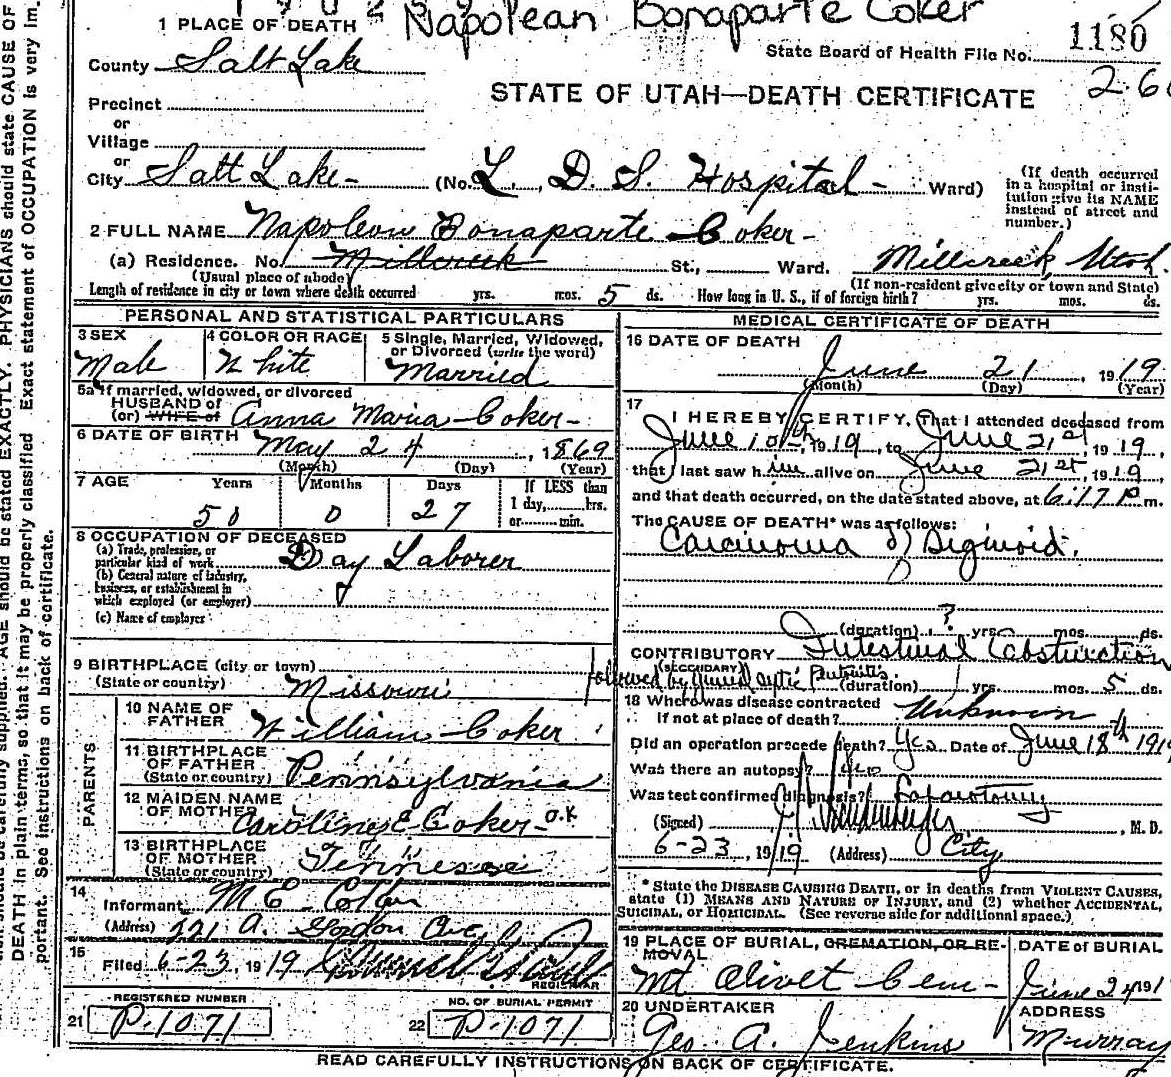 Napolean Bonaparte Coker
1 PLACE OF DEATH
State Board of Health File No. 1180
County Salt Lake
STATE OF UTAH—DEATH CERTIFICATE
Precinct
or
Village
or
City Salt Lake- (No. L. D. S. Hospital- Ward)
(If death occurred in a hospital or insti-
tution give its NAME
instead of street and
number.)
2 FULL NAME Napoleon Bonaparte Coker-
(a) Residence. No. Millcreek St., Ward. Millcreek, Utah.
(Usual place of abode) (If non-resident give city or town and State)
Length of residence in city or town where death occurred yrs. mos. 5 ds. How long in U. S., if of foreign birth? yrs. mos. ds.
PERSONAL AND STATISTICAL PARTICULARS
3 SEX Male
4 COLOR OR RACE White
5 Single, Married, Widowed,
or Divorced (write the word)
Married
5a If married, widowed, or divorced
HUSBAND of
(or) WIFE of Anna Maria Coker-
6 DATE OF BIRTH May 24, 1869
(Month) (Day) (Year)
7 AGE Years Months Days If LESS than
1 day, hrs.
or min.
50 0 27
8 OCCUPATION OF DECEASED
(a) Trade, profession, or
particular kind of work Day Laborer
(b) General nature of industry,
business, or establishment in
which employed (or employer)
(c) Name of employer
9 BIRTHPLACE (city or town)
(State or country) Missouri
PARENTS
10 NAME OF
FATHER William Coker
11 BIRTHPLACE
OF FATHER
(State or country) Pennsylvania
12 MAIDEN NAME
OF MOTHER Caroline E Coker-O.K
13 BIRTHPLACE
OF MOTHER
(State or country) Tennessee
14
Informant M E
(Address) 221 A. Gordon Ave,
15
Filed 6-23, 1919
REGISTRAR
REGISTERED NUMBER
21 P-1071
NO. OF BURIAL PERMIT
22 P-1071
MEDICAL CERTIFICATE OF DEATH
16 DATE OF DEATH
June 21, 1919
(Month) (Day) (Year)
17
I HEREBY CERTIFY, That I attended deceased from
June 18th, 1919, to June 21st, 1919,
that I last saw him alive on June 21st, 1919
and that death occurred, on the date stated above, at 6:17 P m.
The CAUSE OF DEATH* was as follows:
Carcinoma of Sigmoid.
(duration) ? yrs. mos. ds.
CONTRIBUTORY Intestinal Obstruction
(SECONDARY)
followed by general septic Peritonitis. (duration) yrs. mos. 5 ds.
18 Where was disease contracted
If not at place of death? Unknown
Did an operation precede death? Yes Date of June 18th 1919
Was there an autopsy?
Was test confirmed diagnosis? Laparotomy
(Signed) , M. D.
6-23, 1919 (Address) City
* State the DISEASE CAUSING DEATH, or in deaths from VIOLENT CAUSES,
state (1) MEANS AND NATURE OF INJURY, and (2) whether ACCIDENTAL,
SUICIDAL, or HOMICIDAL. (See reverse side for additional space.)
19 PLACE OF BURIAL, CREMATION, OR RE-
MOVAL
Mt Olivet Cem-
DATE of BURIAL
June 24 191
20 UNDERTAKER
Geo. A. Jenkins
ADDRESS
Murray
READ CAREFULLY INSTRUCTIONS ON BACK OF CERTIFICATE.
AGE should be stated EXACTLY. PHYSICIANS should state CAUSE OF
DEATH in plain terms, so that it may be properly classified Exact statement of OCCUPATION is very im.
portant. See instructions on back of certificate.